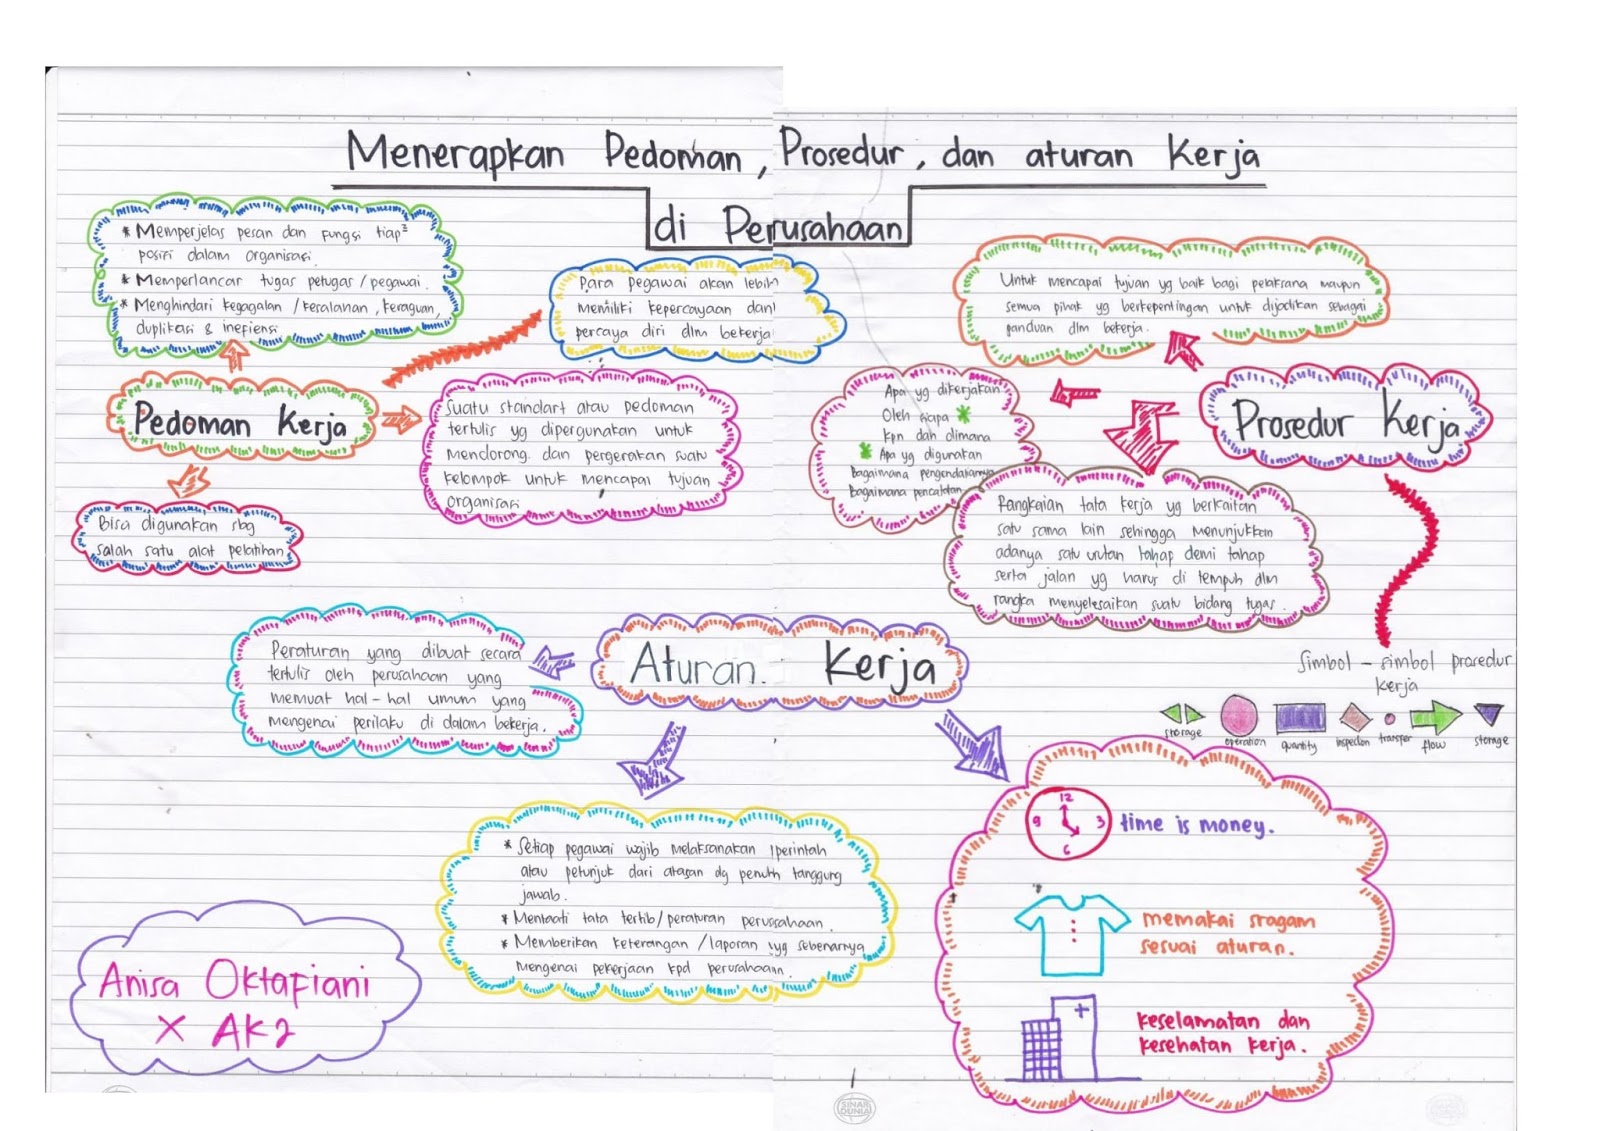 Menerapkan Pedoman, Prosedur, dan aturan Kerja
di Perusahaan
* Memperjelas pesan dan fungsi tiap²
posisi dalam organisasi.
* Memperlancar tugas petugas / pegawai.
* Menghindari kegagalan / kesalahan, keraguan,
duplikasi & inefiensi
Para pegawai akan lebih
memiliki kepercayaan dan
percaya diri dlm bekerja
Pedoman Kerja
Suatu standart atau pedoman
tertulis yg dipergunakan untuk
mendorong dan pergerakan suatu
kelompok untuk mencapai tujuan
organisasi
Bisa digunakan sbg
salah satu alat pelatihan
Untuk mencapai tujuan yg baik bagi pelaksana maupun
semua pihak yg berkepentingan untuk dijadikan sebagai
panduan dlm bekerja.
Prosedur Kerja
Apa yg dikerjakan
Oleh siapa *
kpn dan dimana
* Apa yg digunakan
Bagaimana pengendaliannya
Bagaimana pencatatan
Rangkaian tata kerja yg berkaitan
satu sama lain sehingga menunjukkan
adanya satu urutan tahap demi tahap
serta jalan yg harus di tempuh dlm
rangka menyelesaikan suatu bidang tugas.
Simbol - simbol prosedur
kerja
storage operation quantity inspection transfer flow storage
Aturan Kerja
Peraturan yang dibuat secara
tertulis oleh perusahaan yang
memuat hal-hal umum yang
mengenai perilaku di dalam bekerja.
* Setiap pegawai wajib melaksanakan perintah
atau petunjuk dari atasan dg penuh tanggung
jawab.
* Mentaati tata tertib/peraturan perusahaan.
* Memberikan keterangan /laporan yg sebenarnya
mengenai pekerjaan kpd perusahaan.
12
9 3
6
time is money.
memakai sragam
sesuai aturan.
keselamatan dan
kesehatan kerja.
Anisa Oktafiani
X AK2
SINAR
DUNIA